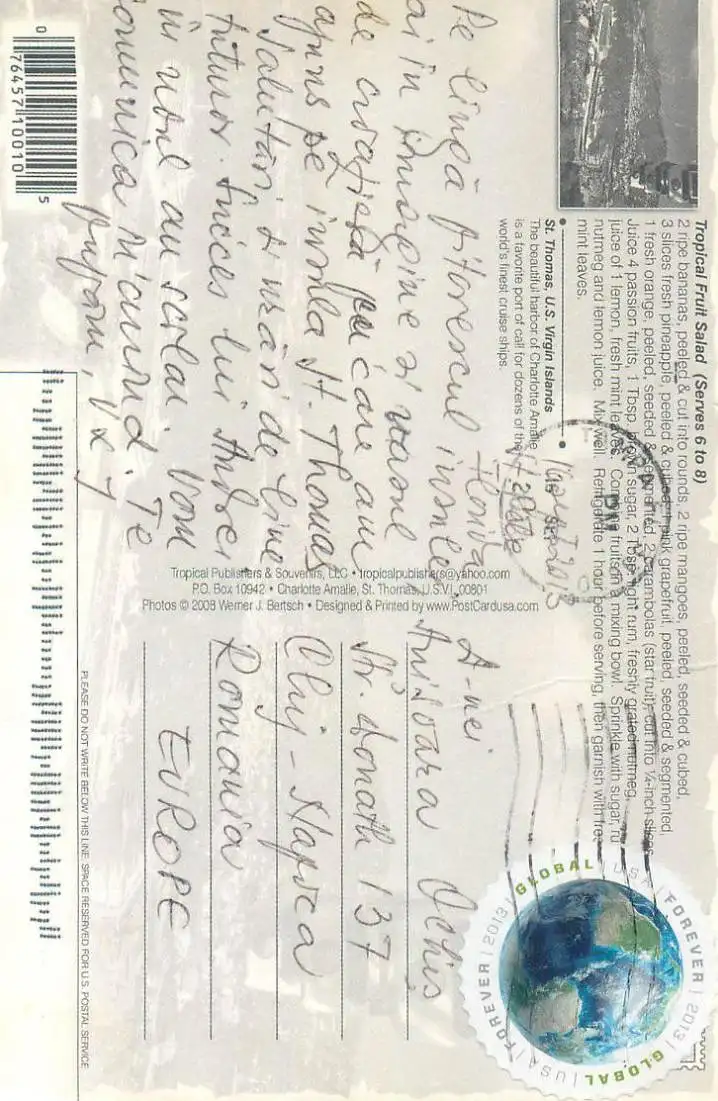 Tropical Fruit Salad (Serves 6 to 8)
2 ripe bananas, peeled & cut into rounds, 2 ripe mangoes, peeled, seeded & cubed,
3 slices fresh pineapple, peeled & cubed, 1 pink grapefruit, peeled, seeded & segmented,
1 fresh orange, peeled, seeded & segmented, 2 carambolas (star fruit), cut into ¼-inch slices
Juice 4 passion fruits, 1 Tbsp. brown sugar, 2 Tbsp. light rum, freshly grated nutmeg,
juice of 1 lemon, fresh mint leaves. Combine fruits in a mixing bowl. Sprinkle with sugar, ru
nutmeg and lemon juice. Mix well. Refrigerate 1 hour before serving, then garnish with fres
mint leaves.
St. Thomas, U.S. Virgin Islands
The beautiful harbor of Charlotte Amalie
is a favorite port of call for dozens of the
world's finest cruise ships.
2013
Florida
Pe lingă pitorescul insule
ai în imagine și vasul
de croazieră pe care am
ajuns pe insula St. Thomas
Salutări și urări de bine
tuturor. Succes lui Andrei
în noul an școlar. Vom
comunica în curînd. Te
pupăm,
Tropical Publishers & Souvenirs, LLC • tropicalpublishers@yahoo.com
P.O. Box 10942 • Charlotte Amalie, St. Thomas, U.S.V.I. 00801
Photos © 2008 Werner J. Bertsch • Designed & Printed by www.PostCardusa.com
A-nei
Anișoara Ochiș
Str. Donath 137
Cluj-Napoca
Romania
EUROPE
GLOBAL | USA | FOREVER | 2013 | GLOBAL | USA | FOREVER | 2013 |
PLEASE DO NOT WRITE BELOW THIS LINE. SPACE RESERVED FOR U.S. POSTAL SERVICE
0 76457 10010 5